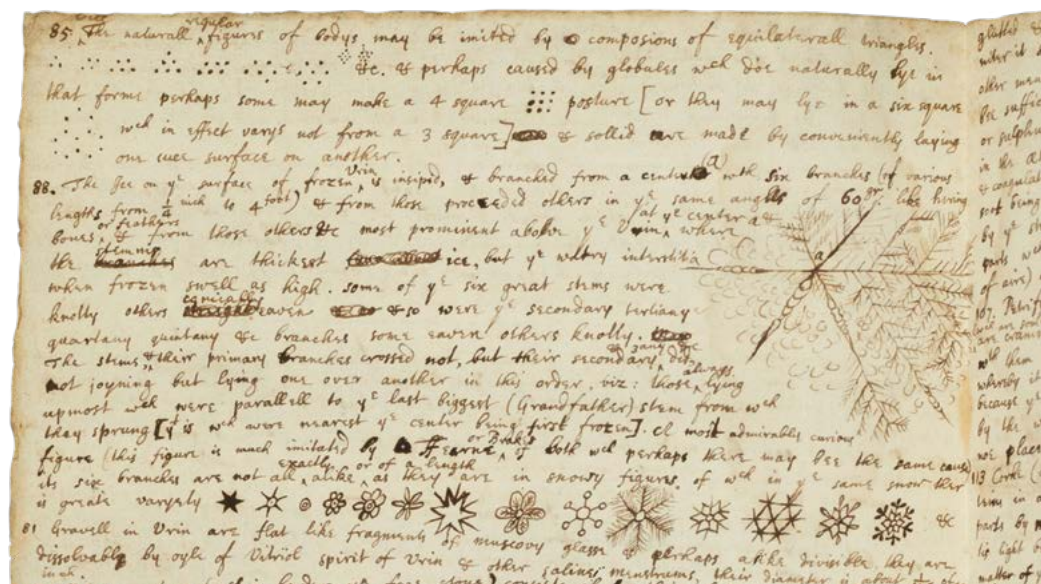 85. The naturall regular figures of bodys may be imited by composions of equilaterall triangles.
&c. & perhaps caused by globules wch doe naturally lye in
that forme perhaps some may make a 4 square posture [or they may lye in a six square
wch in effect varys not from a 3 square] & sollid are made by conveniently laying
one such surface on another.
88. The Ice on ye surface of frozen Vrin is insipid, & branched from a center (a) wth six branches (of various
lengths from 1/4 inch to 4 foot) & from those proceeded others in ye same angles of 60gr. like hering
bones or feathers & from those others &c most prominent above ye Vrin where at ye center a &
the stemms are thickest ice, but ye watry interstitia
when frozen swell as high. some of ye six great stems were
knotty others eaven & so were ye secondary tertiany
quartany quintany &c branches some eaven others knotty.
The stems & their primary branches crossed not, but their secondary, & 3any &c did,
not joyning but lying one over another in this order, viz: those always lying
upmost wch were parallell to ye last biggest (Grandfather) stem from wch
they sprung [yt is wch were nearest ye center being first frozen]. A most admirably curious
figure (this figure is much imitated by ffearne or Brakes, of both wch perhaps there may bee the same cause)
its six branches are not all exactly alike or of a length as they are in snowy figures. of wch in ye same snow ther
is greate varyety &c
81 Gravell in Vrin are flat like fragments of muscovy glasse & perhaps alike divisible, they are
dissolvable by oyle of Vitriol spirit of Vrin & other saline menstruums, their diameter is about
glutted &
other
bee suffic
or sulphur
in the
& coagulat
soot being
by ye
parts wch
of aire)
107. Petrif
are
wth them
whereby it
because ye
by the w
we place
113 Cork
parts by
light
matter of